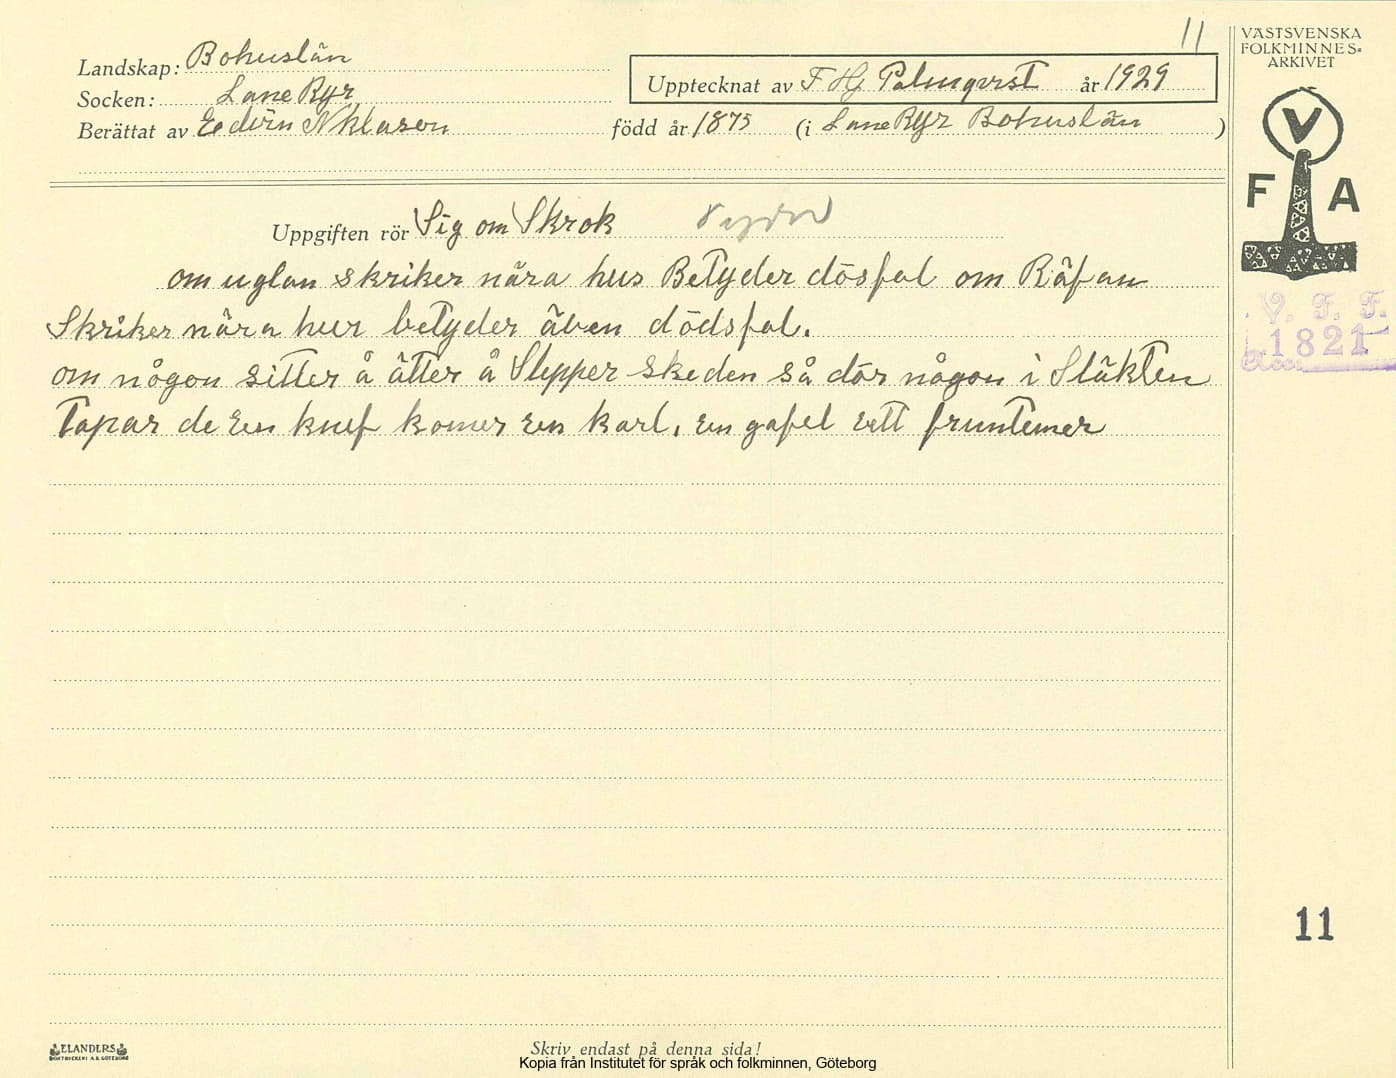 11
VÄSTSVENSKA
FOLKMINNES-
ARKIVET
Landskap: Bohuslän
Upptecknat av F Hj Palmqvist år 1929
Socken: Lane Ryr
Berättat av Niklason född år 1875 (i Lane Ryr Bohuslän )
V
F A
Uppgiften rör Sig om Skrok
om uglan skriker nära hus Betyder dösfal om Räfan
Skriker nära hur betyder även dödsfal.
om någon sitter å ätter å Slepper skeden så dör någon i Släkten
Tapar de Een knif komer een karl, en gafel ett fruntemer
V. F. F.
1821
Acc.
11
ELANDERS
BOKTRYCKERI A.B. GÖTEBORG
Skriv endast på denna sida!
Kopia från Institutet för språk och folkminnen, Göteborg